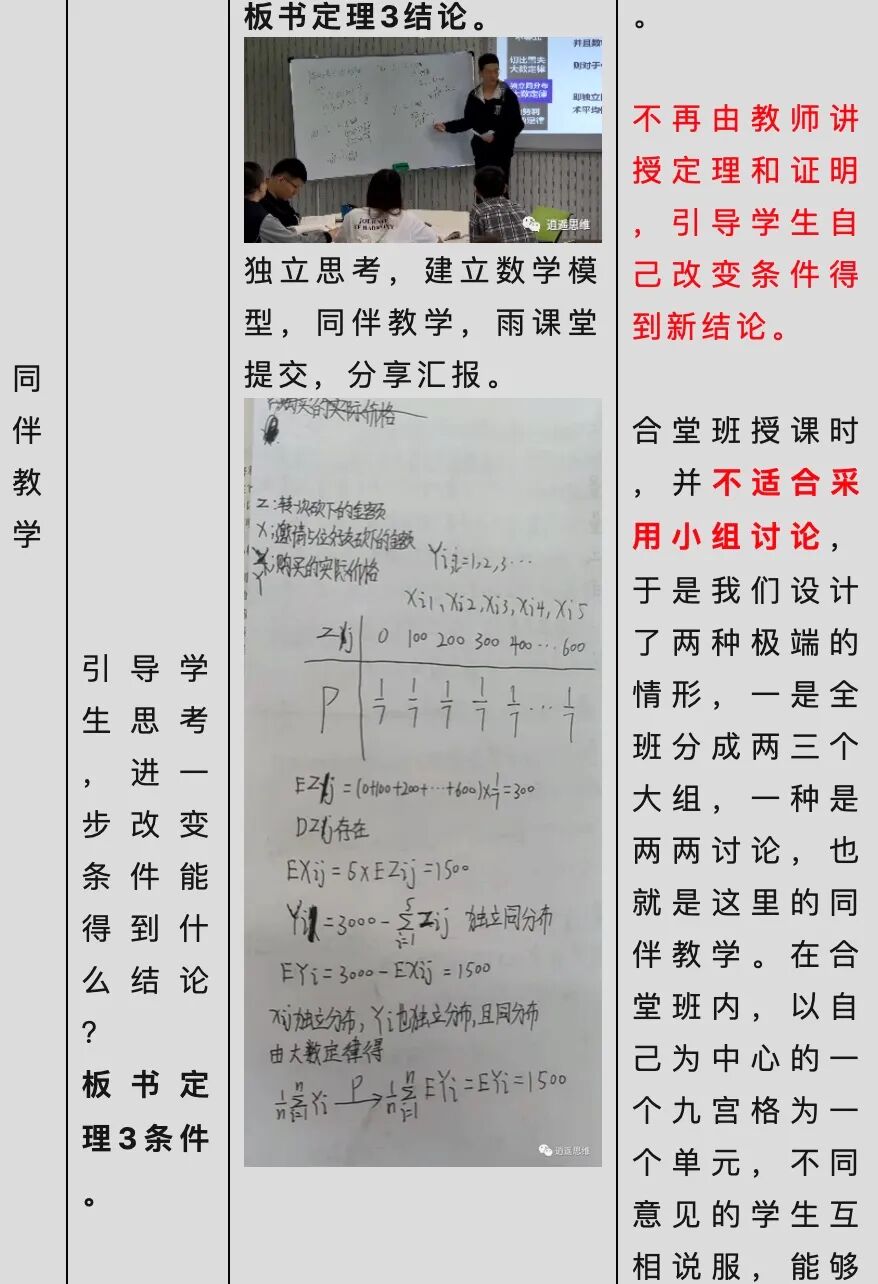 同
伴
教
学
引导学
生思考
，进一
步改变
条件能
得到什
么结论
？
板书定
理3条件
。
板书定理3结论。
并且数
切比雪夫
大数定律
则对于
独立同分布
大数定律
即独立
术平均
逍遥思维
独立思考，建立数学模
型，同伴教学，雨课堂
提交，分享汇报。
购买的实际价格
Z:转一次砍下的金额
X:邀请5位好友砍下的金额
购买的实际价格
Y
Yi,i=1,2,3…
Xi1,Xi2,Xi3,Xi4,Xi5
Zij 0 100 200 300 400 … 600
P 1/7 1/7 1/7 1/7 1/7 … 1/7
EZij=(0+100+200+…+600)×1/7=300
DZij存在
EXij=5×EZij=1500
Yi=3000-∑(i=1→5)Zij 独立同分布
EYi=3000-EXij=1500
Xij独立分布,Yi也独立分布,且同分布
由大数定律得
1/n∑(i=1→n)Yi —P→ 1/n∑(i=1→n)EYi=EYi=1500
逍遥思维
。
不再由教师讲
授定理和证明
，引导学生自
己改变条件得
到新结论。
合堂班授课时
，并不适合采
用小组讨论，
于是我们设计
了两种极端的
情形，一是全
班分成两三个
大组，一种是
两两讨论，也
就是这里的同
伴教学。在合
堂班内，以自
己为中心的一
个九宫格为一
个单元，不同
意见的学生互
相说服，能够